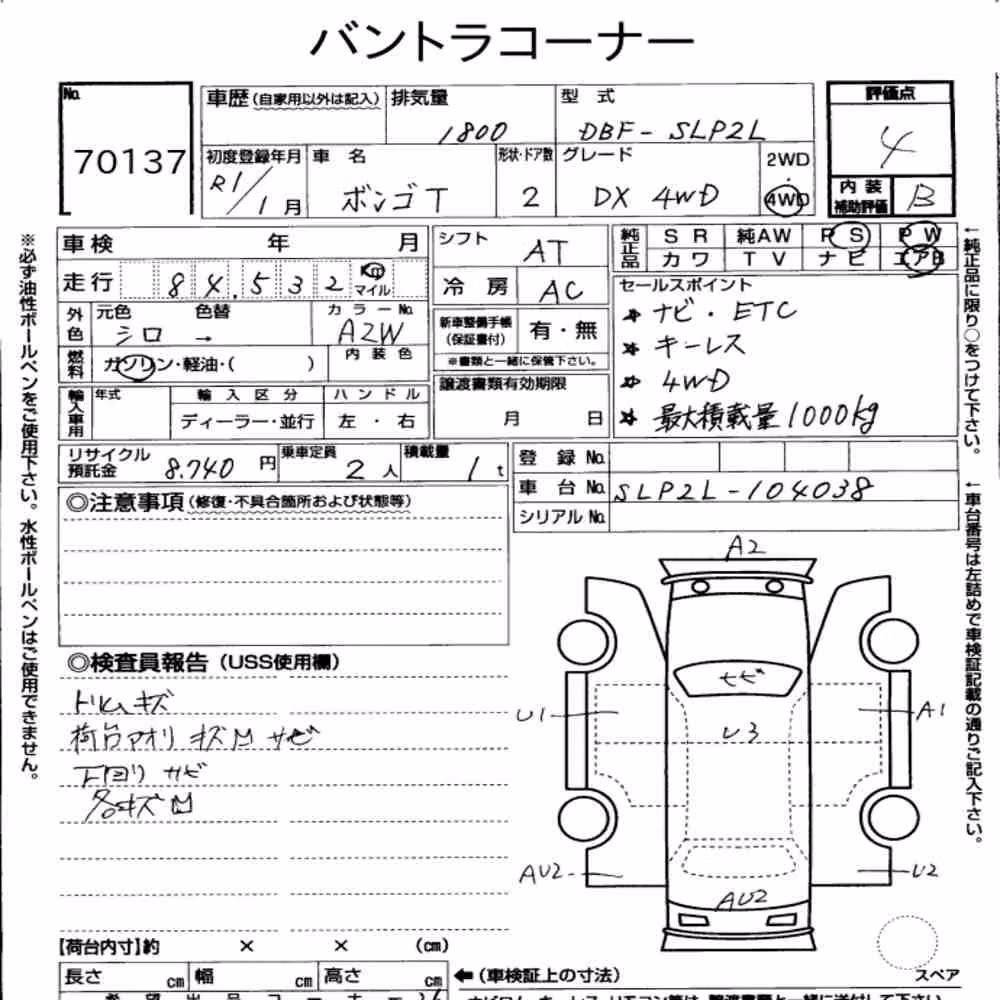 バントラコーナー
No.
70137
車歴(自家用以外は記入)
排気量
1800
型 式
DBF-SLP2L
評価点
4
初度登録年月
R1/1月
車 名
ボンゴT
形状・ドア数
2
グレード
DX 4WD
2WD
・
4WD
内装
補助評価
B
車検 年 月
シフト
AT
純正品
SR 純AW PS PW
カワ TV ナビ エアB
走行 84,532 Km
マイル
冷房
AC
セールスポイント
★ナビ・ETC
★キーレス
★4WD
★最大積載量1000kg
外色
元色 色替
シロ →
カラーNo.
A2W
新車整備手帳
(保証書付)
有・無
※書類と一緒に保管下さい。
燃料
ガソリン・軽油・( )
内装色
譲渡書類有効期限
月 日
輸入車用
年式
輸入区分
ディーラー・並行
ハンドル
左・右
リサイクル
預託金
8.740円
乗車定員
2人
積載量
1t
登録No.
車台No.
SLP2L-104038
シリアルNo.
◎注意事項(修復・不具合箇所および状態等)
◎検査員報告(USS使用欄)
トリムキズ
荷台アオリ キズM サビ
下回り サビ
各キズM
A2
U1
A1
U3
AU2
U2
AU2
スペア
【荷台内寸】約 × × (cm)
長さ cm
幅 cm
高さ cm
←(車検証上の寸法)
※必ず油性ボールペンをご使用下さい。水性ボールペンはご使用できません。
←純正品に限り○をつけて下さい。
←車台番号は左詰めで車検証記載の通りご記入下さい。